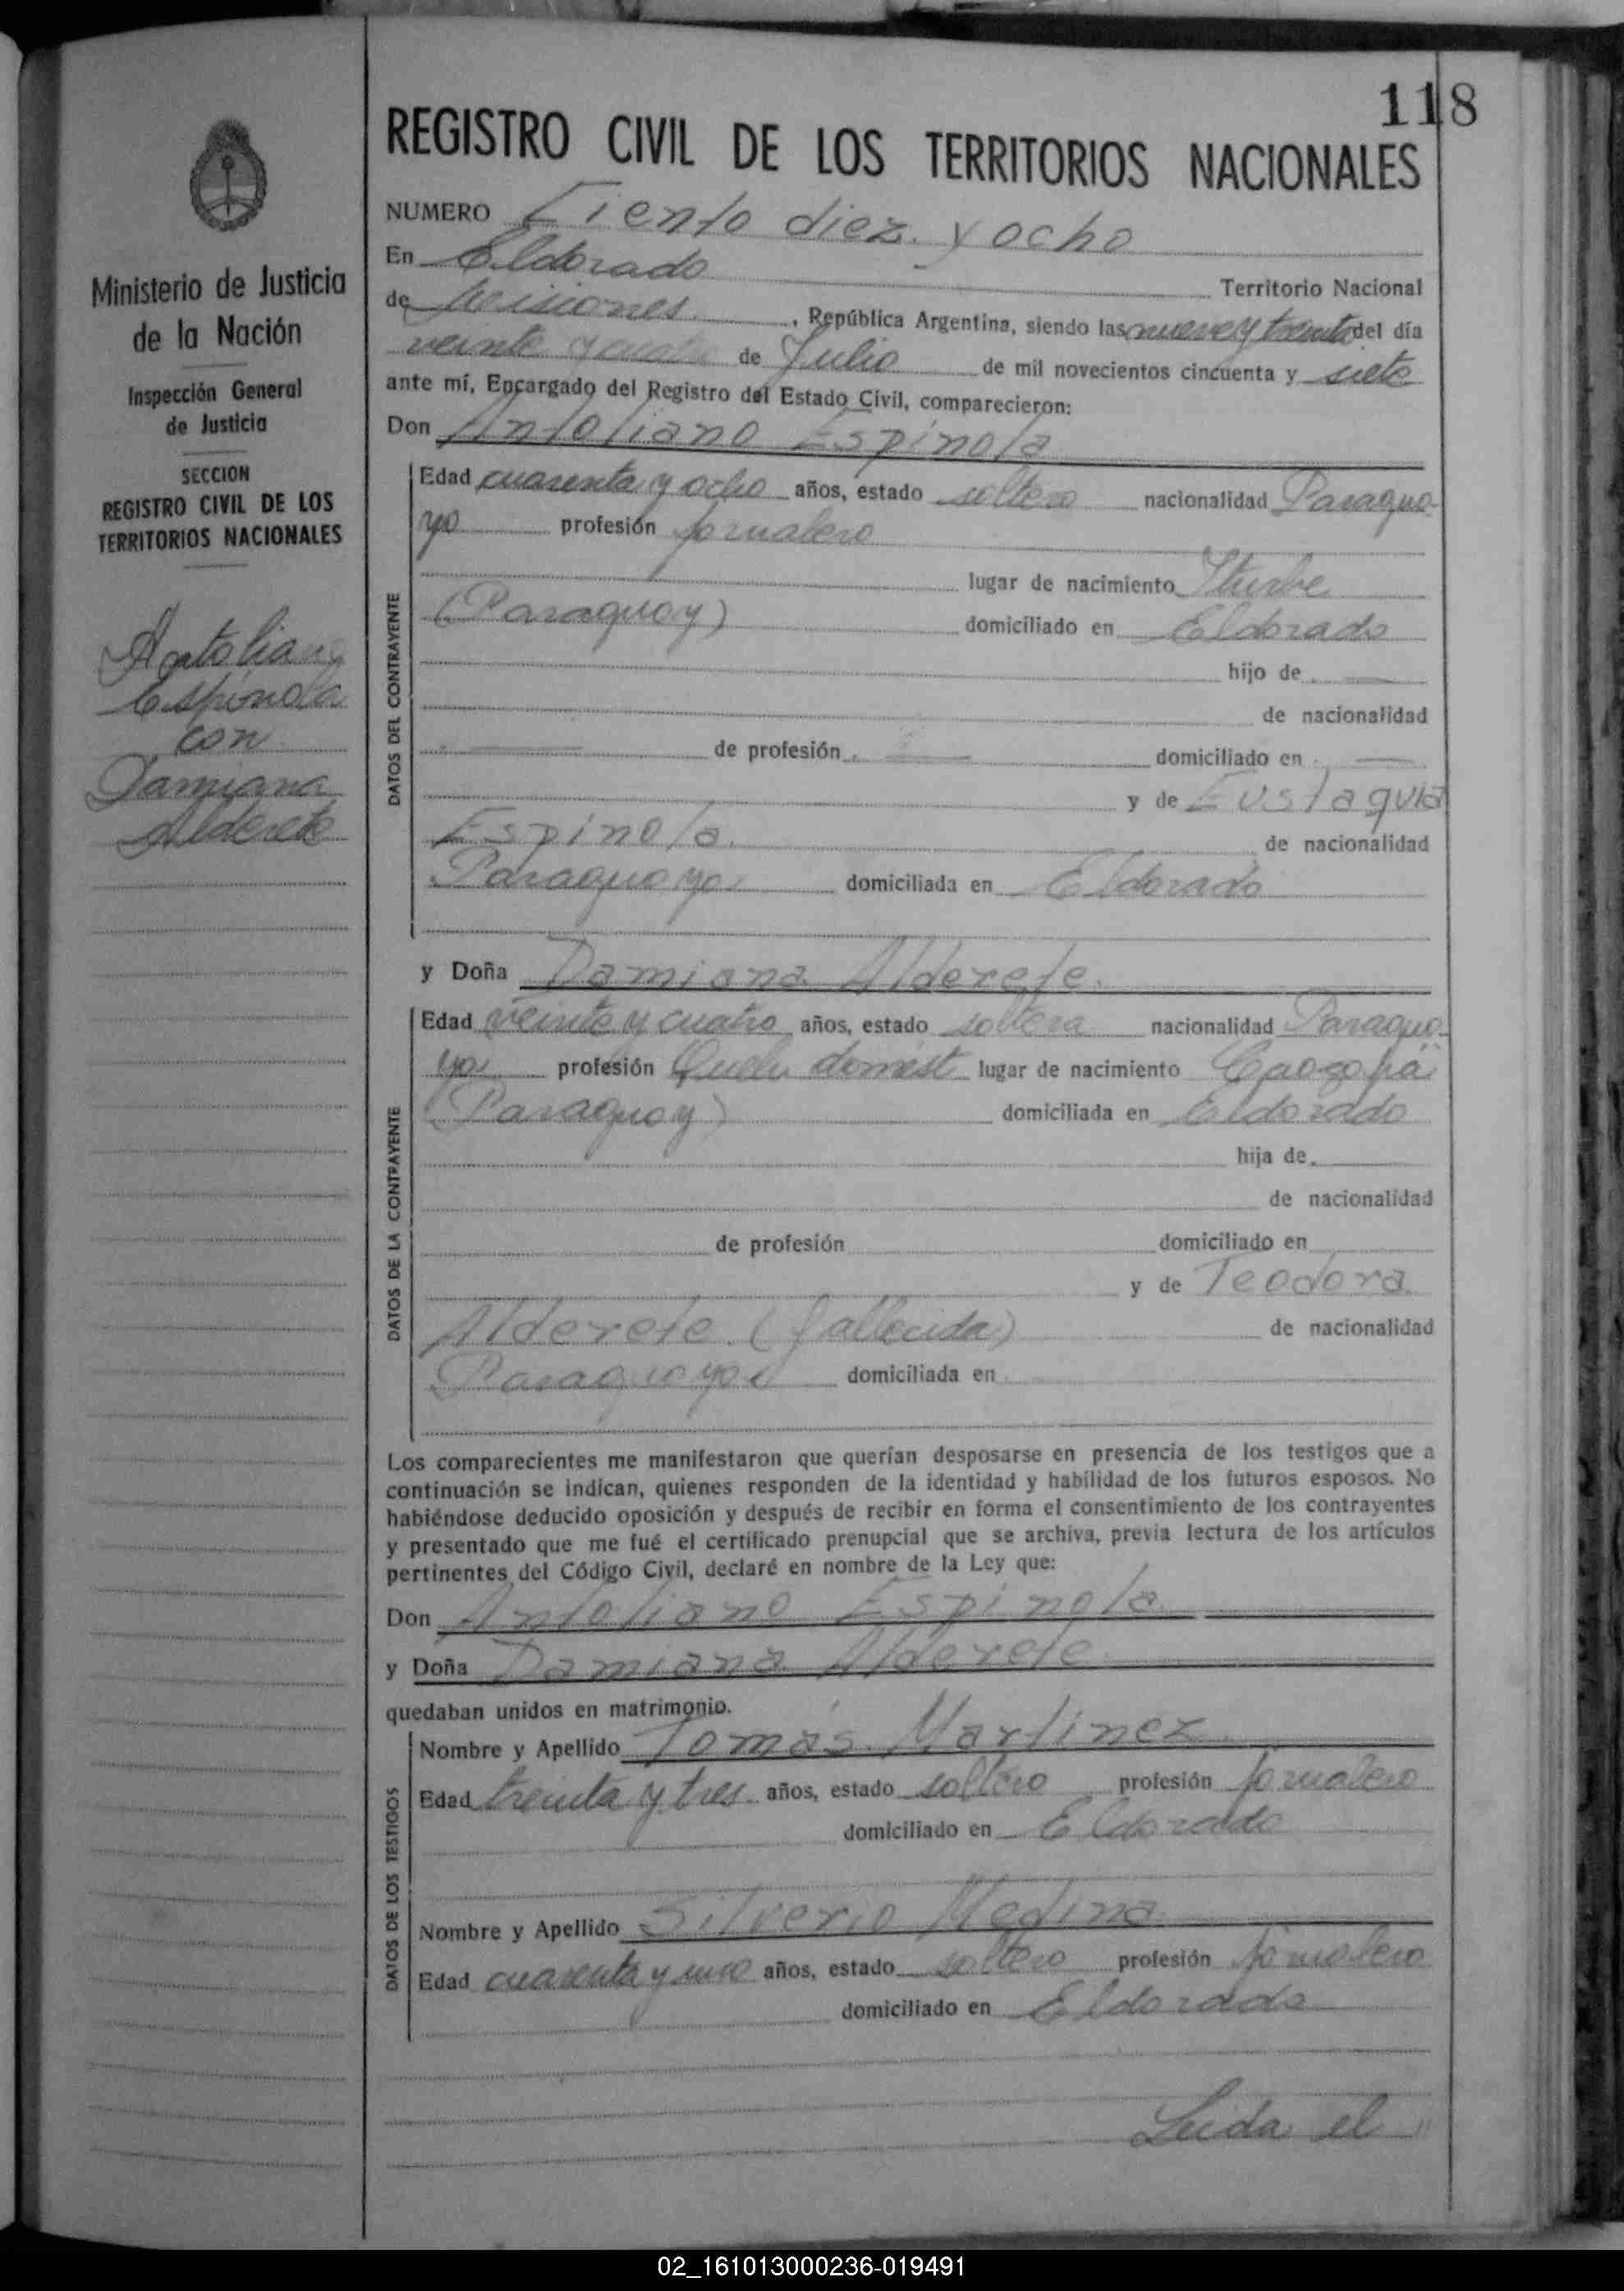 118
REGISTRO CIVIL DE LOS TERRITORIOS NACIONALES
NUMERO Ciento diez y ocho
En Eldorado Territorio Nacional
de Misiones, República Argentina, siendo las nueve y treinta del día
veinte y cuatro de Julio de mil novecientos cincuenta y siete
ante mí, Encargado del Registro del Estado Civil, comparecieron:
Don Antoliano Espínola
Ministerio de Justicia
de la Nación
Inspección General
de Justicia
SECCION
REGISTRO CIVIL DE LOS
TERRITORIOS NACIONALES
Antoliano
Espínola
con
Damiana
Alderete
DATOS DEL CONTRAYENTE
Edad cuarenta y ocho años, estado soltero nacionalidad Paragua-
yo profesión jornalero
lugar de nacimiento Iturbe
(Paraguay) domiciliado en Eldorado
hijo de
de nacionalidad
de profesión domiciliado en
y de Eustaquia
Espínola. de nacionalidad
Paraguaya domiciliada en Eldorado
y Doña Damiana Alderete.
DATOS DE LA CONTRAYENTE
Edad veinte y cuatro años, estado soltera nacionalidad Paragua-
ya profesión domést lugar de nacimiento
Paraguay) domiciliada en Eldorado
hija de
de nacionalidad
de profesión domiciliado en
y de Teodora
Alderete (fallecida) de nacionalidad
Paraguaya domiciliada en
Los comparecientes me manifestaron que querían desposarse en presencia de los testigos que a
continuación se indican, quienes responden de la identidad y habilidad de los futuros esposos. No
habiéndose deducido oposición y después de recibir en forma el consentimiento de los contrayentes
y presentado que me fué el certificado prenupcial que se archiva, previa lectura de los artículos
pertinentes del Código Civil, declaré en nombre de la Ley que:
Don Antoliano Espínola
y Doña Damiana Alderete
quedaban unidos en matrimonio.
DATOS DE LOS TESTIGOS
Nombre y Apellido Tomás Martínez
Edad treinta y tres años, estado soltero profesión jornalero
domiciliado en Eldorado
Nombre y Apellido Silverio Medina
Edad cuarenta y uno años, estado soltero profesión jornalero
domiciliado en Eldorado
Leida el
02_161013000236-019491